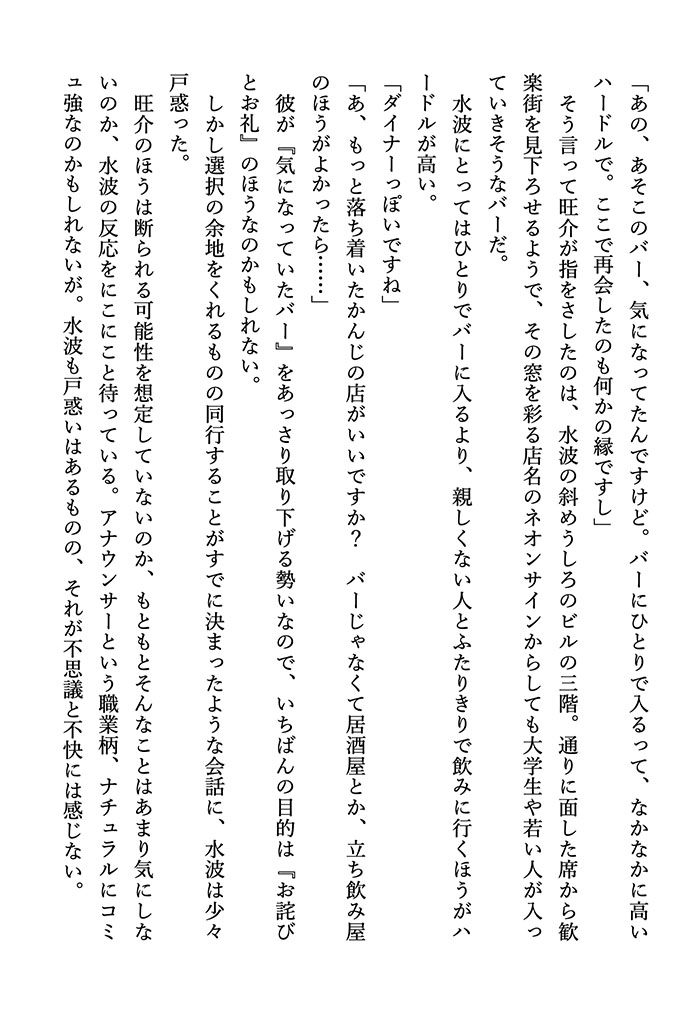 「あの、あそこのバー、気になってたんですけど。バーにひとりで入るって、なかなかに高い
ハードルで。ここで再会したのも何かの縁ですし」
　そう言って旺介が指をさしたのは、水波の斜めうしろのビルの三階。通りに面した席から歓
楽街を見下ろせるようで、その窓を彩る店名のネオンサインからしても大学生や若い人が入っ
ていきそうなバーだ。
　水波にとってはひとりでバーに入るより、親しくない人とふたりきりで飲みに行くほうがハ
ードルが高い。
「ダイナーっぽいですね」
「あ、もっと落ち着いたかんじの店がいいですか？　バーじゃなくて居酒屋とか、立ち飲み屋
のほうがよかったら……」
　彼が『気になっていたバー』をあっさり取り下げる勢いなので、いちばんの目的は『お詫び
とお礼』のほうなのかもしれない。
　しかし選択の余地をくれるものの同行することがすでに決まったような会話に、水波は少々
戸惑った。
　旺介のほうは断られる可能性を想定していないのか、もともとそんなことはあまり気にしな
いのか、水波の反応をにこにこと待っている。アナウンサーという職業柄、ナチュラルにコミ
ュ強なのかもしれないが。水波も戸惑いはあるものの、それが不思議と不快には感じない。